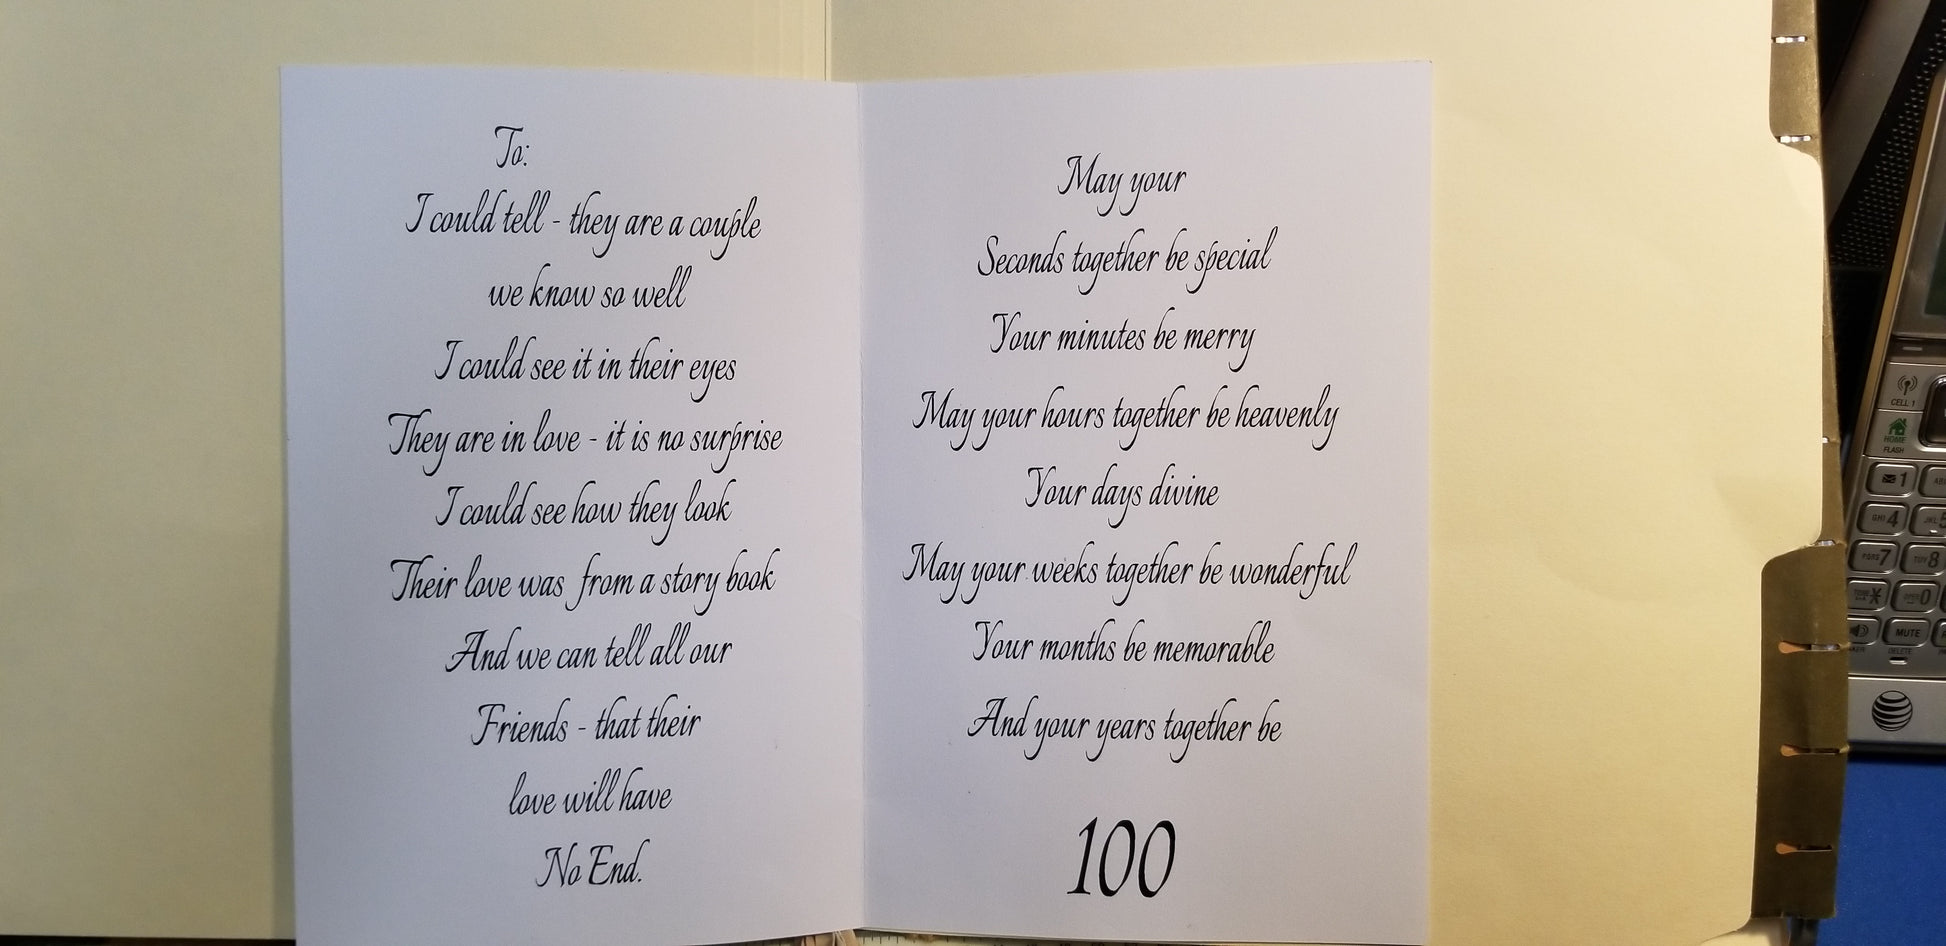 To:
I could tell - they are a couple
we know so well
I could see it in their eyes
They are in love - it is no surprise
I could see how they look
Their love was from a story book
And we can tell all our
Friends - that their
love will have
No End.
May your
Seconds together be special
Your minutes be merry
May your hours together be heavenly
Your days divine
May your weeks together be wonderful
Your months be memorable
And your years together be
100
CELL 1
HOME
FLASH
1
GHI 4
PQRS 7
TUV 8
OPER 0
MUTE
DELETE